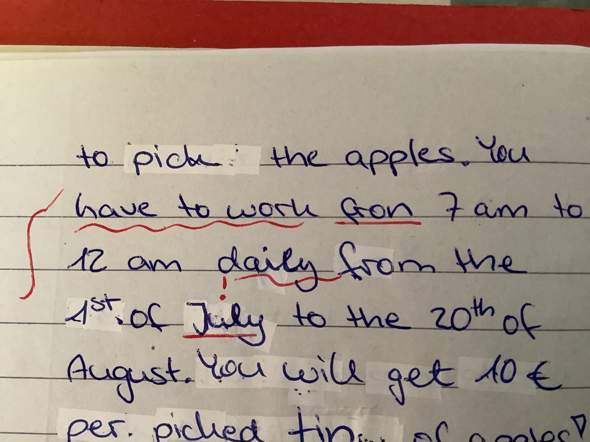 to pick the apples. You
have to work fron 7 am to
12 am daily from the
1st. of July to the 20th of
August. You will get 10 €
per. picked of apples